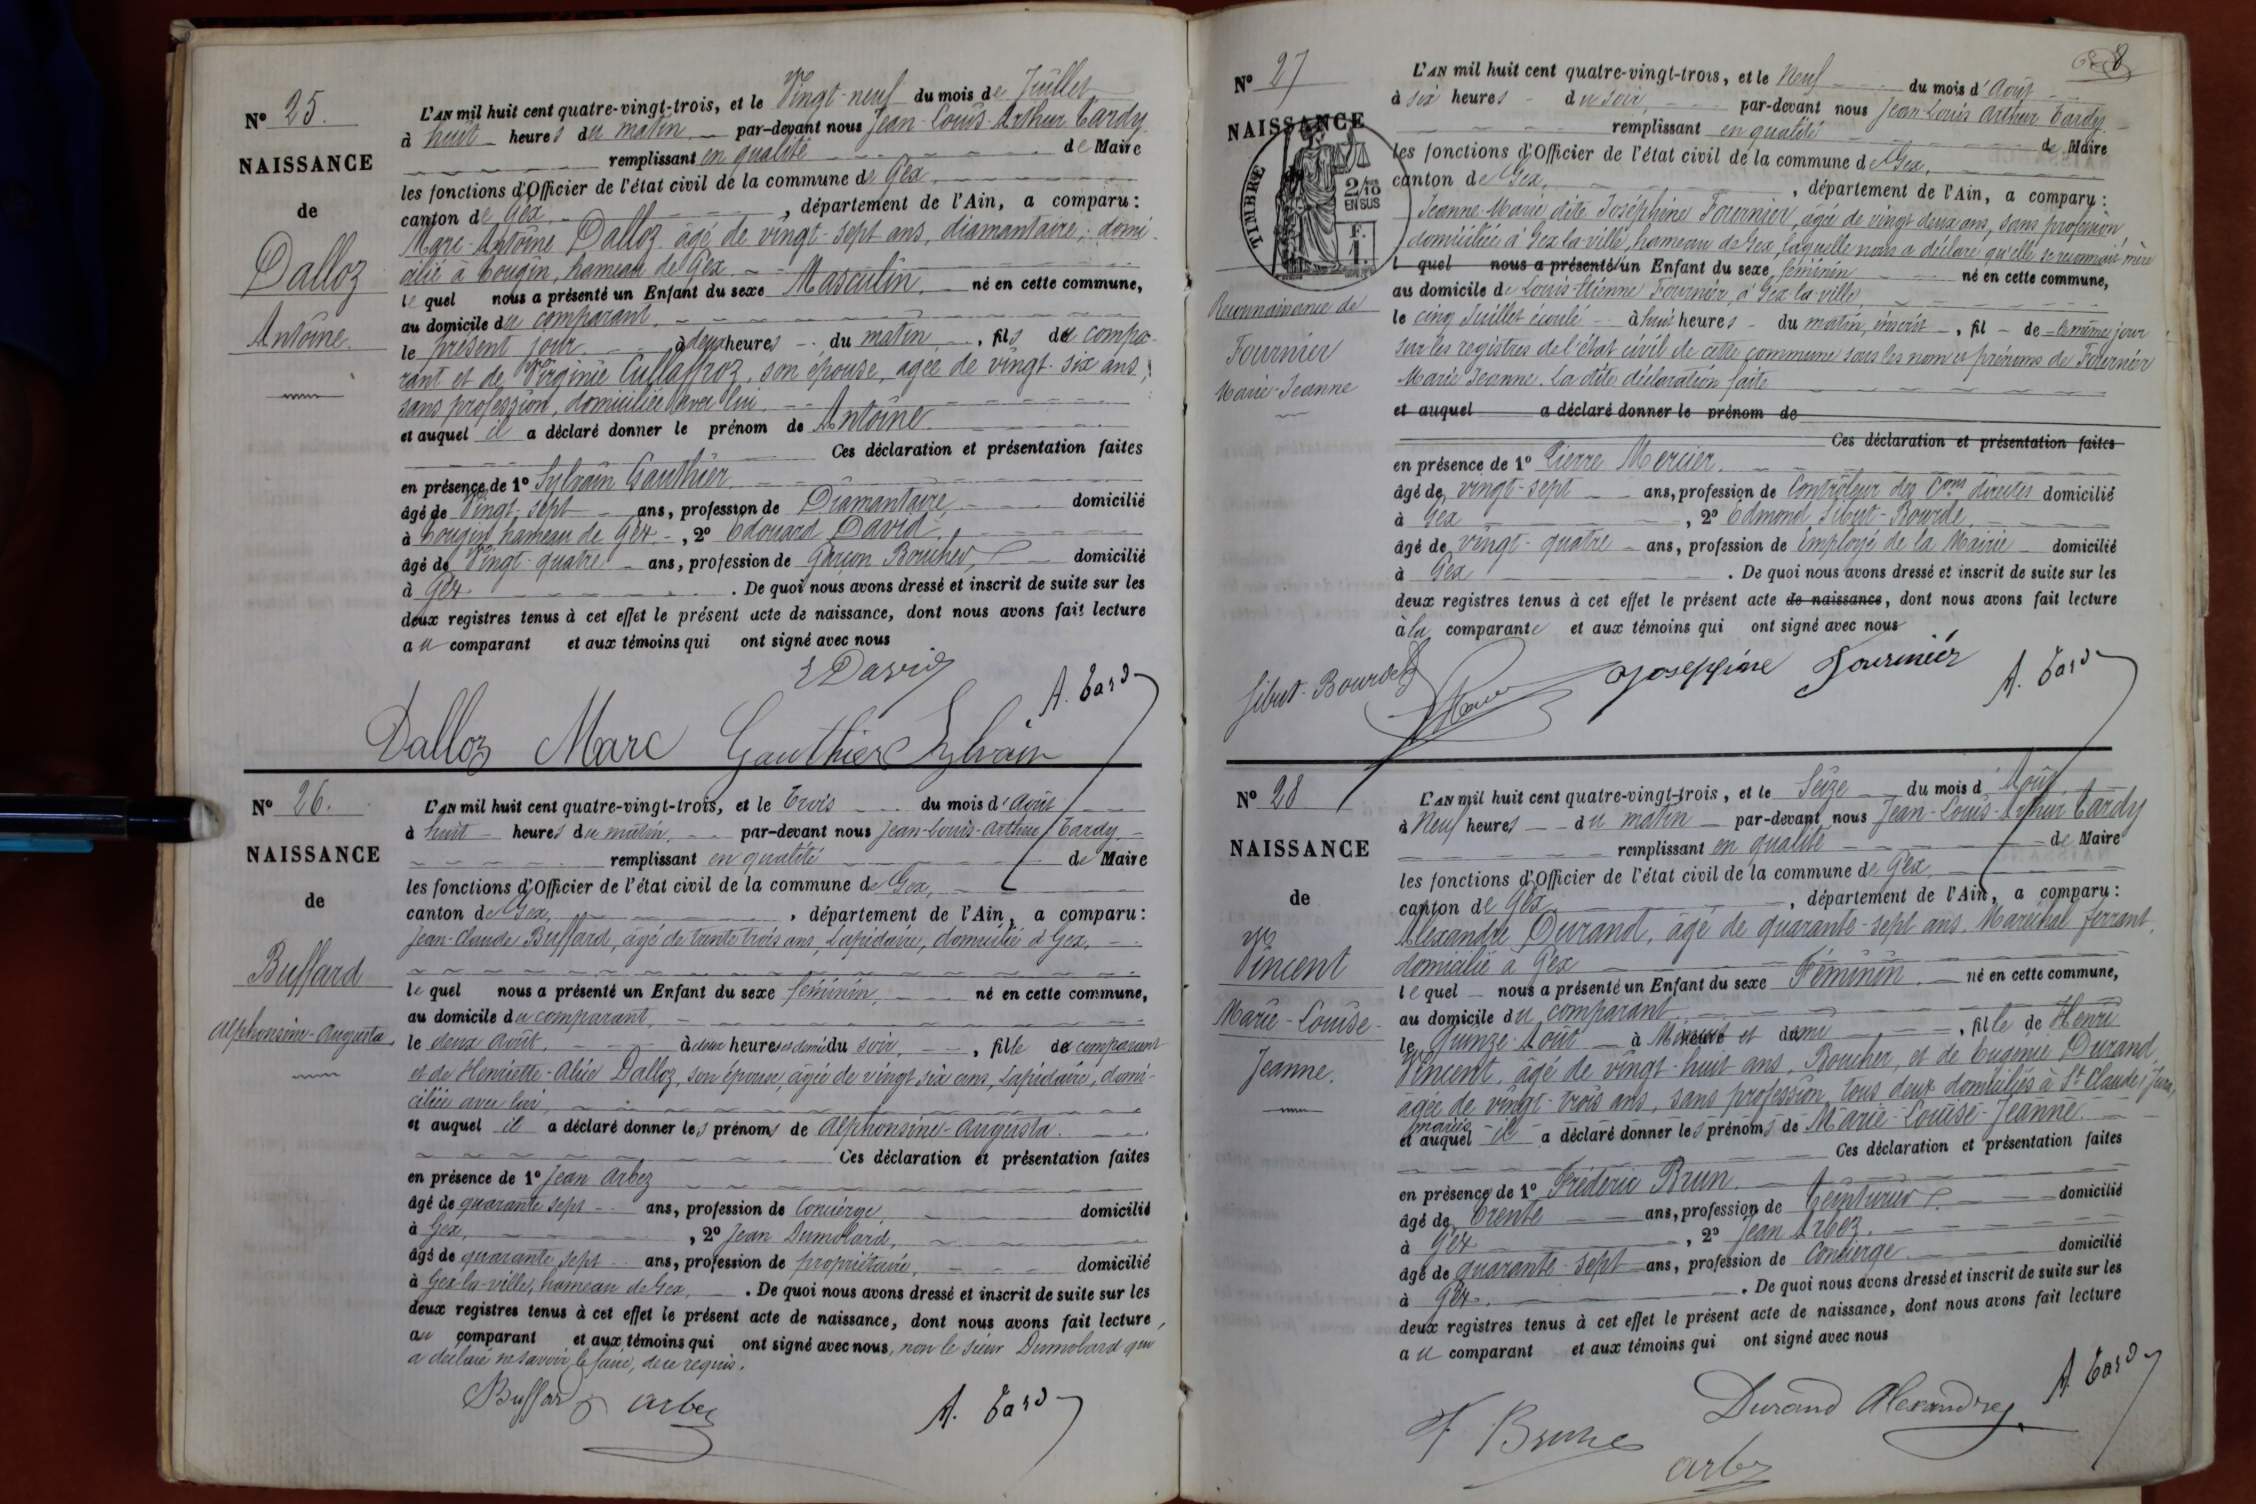 N° 25.
NAISSANCE
de
Dalloz
Antoine.
L'AN mil huit cent quatre-vingt-trois, et le Vingt-neuf du mois de Juillet
à huit heures du matin par-devant nous Jean-Louis-Arthur Tardy
remplissant en qualité de Maire
les fonctions d'Officier de l'état civil de la commune de Gex
canton de Gex, département de l'Ain, a comparu:
Marc-Antoine Dalloz âgé de vingt-sept ans, diamantaire, domi-
cilié à Cougin, hameau de Gex
lequel nous a présenté un Enfant du sexe Masculin, né en cette commune,
au domicile du comparant,
le présent jour à deux heures du matin, fils du compa-
rant et de Virginie Cullaffroz, son épouse, agée de vingt-six ans,
sans profession, domiciliée avec lui,
et auquel il a déclaré donner le prénom de Antoine.
Ces déclaration et présentation faites
en présence de 1° Sylvain Gauthier
âgé de Vingt-sept ans, profession de Diamantaire, domicilié
à Cougin hameau de Gex, 2° Edouard David,
âgé de Vingt-quatre ans, profession de garçon Boucher, domicilié
à Gex. De quoi nous avons dressé et inscrit de suite sur les
deux registres tenus à cet effet le présent acte de naissance, dont nous avons fait lecture
au comparant et aux témoins qui ont signé avec nous
E David
A. Tardy
Dalloz Marc Gauthier Sylvain
N° 26.
NAISSANCE
de
Buffard
Alphonsine-Augusta
L'AN mil huit cent quatre-vingt-trois, et le Trois du mois d'Août
à huit heures du matin, par-devant nous Jean-Louis-Arthur Tardy
remplissant en qualité de Maire
les fonctions d'Officier de l'état civil de la commune de Gex,
canton de Gex, département de l'Ain, a comparu:
Jean-Claude Buffard, âgé de trente trois ans, Lapidaire, domicilié à Gex,
lequel nous a présenté un Enfant du sexe féminin, né en cette commune,
au domicile du comparant,
le deux Août, à deux heures et demie du soir, fille du comparant
et de Henriette-Alice Dalloz, son épouse, âgée de vingt six ans, Lapidaire, domi-
ciliée avec lui,
et auquel il a déclaré donner les prénoms de Alphonsine-Augusta.
Ces déclaration et présentation faites
en présence de 1° Jean Arbez
âgé de quarante sept ans, profession de Concierge, domicilié
à Gex, 2° Jean Dumolard,
âgé de quarante sept ans, profession de propriétaire, domicilié
à Gex-la-ville, hameau de Gex, De quoi nous avons dressé et inscrit de suite sur les
deux registres tenus à cet effet le présent acte de naissance, dont nous avons fait lecture
au comparant et aux témoins qui ont signé avec nous, non le sieur Dumolard qui
a déclaré ne savoir le faire, de ce requis.
Buffard Arbez A. Tardy
8
N° 27
NAISSANCE
TIMBRE
2/10
EN SUS
F.
1.
Reconnaissance de
Fournier
Marie-Jeanne
L'AN mil huit cent quatre-vingt-trois, et le Neuf du mois d'Août
à six heures du soir, par-devant nous Jean-Louis Arthur Tardy
remplissant en qualité de Maire
les fonctions d'Officier de l'état civil de la commune de Gex,
canton de Gex, département de l'Ain, a comparu:
Jeanne-Marie, dite Joséphine Fournier, âgée de vingt deux ans, sans profession,
domiciliée à Gex-la-ville, hameau de Gex, laquelle nous a déclaré qu'elle se reconnait mère
l quel nous a présenté d'un Enfant du sexe féminin né en cette commune,
au domicile de Louis-Etienne Fournier, à Gex-la-ville,
le cinq Juillet écoulé à huit heures du matin, inscrit, fil de le même jour
sur les registres de l'état civil de cette commune sous les nom et prénoms de Fournier
Marie Jeanne. La dite déclaration faite
et auquel a déclaré donner le prénom de
Ces déclaration et présentation faites
en présence de 1° Pierre Mercier,
âgé de vingt-sept ans, profession de Contrôleur des Cons directes domicilié
à Gex, 2° Edmond Sibut-Bourde,
âgé de vingt-quatre ans, profession de Employé de la Mairie domicilié
à Gex. De quoi nous avons dressé et inscrit de suite sur les
deux registres tenus à cet effet le présent acte de naissance, dont nous avons fait lecture
à la comparante et aux témoins qui ont signé avec nous
Sibut-Bourde Josephine Fournier A. Tardy
N° 28
NAISSANCE
de
Vincent
Marie-Louise-
Jeanne.
L'AN mil huit cent quatre-vingt-trois, et le Seize du mois d'Août
à Neuf heures du matin par-devant nous Jean-Louis-Arthur Tardy
remplissant en qualité de Maire
les fonctions d'Officier de l'état civil de la commune de Gex,
canton de Gex, département de l'Ain, a comparu:
Alexandre Durand, âgé de quarante-sept ans, Maréchal ferrant,
domicilié à Gex
lequel nous a présenté un Enfant du sexe Féminin, né en cette commune,
au domicile du comparant,
le Quinze Août à Minuit et demi, fille de Henri
Vincent, âgé de vingt-huit ans, Boucher, et de Eugénie Durand,
âgée de vingt-trois ans, sans profession, tous deux domiciliés à St Claude (Jura)
mariés
et auquel il a déclaré donner les prénoms de Marie-Louise-Jeanne.
Ces déclaration et présentation faites
en présence de 1° Frédéric Brun
âgé de Trente ans, profession de Teinturier, domicilié
à Gex, 2° Jean Arbez
âgé de quarante-sept ans, profession de Concierge domicilié
à Gex. De quoi nous avons dressé et inscrit de suite sur les
deux registres tenus à cet effet le présent acte de naissance, dont nous avons fait lecture
au comparant et aux témoins qui ont signé avec nous
Durand Alexandre A. Tardy
F. Brun
Arbez